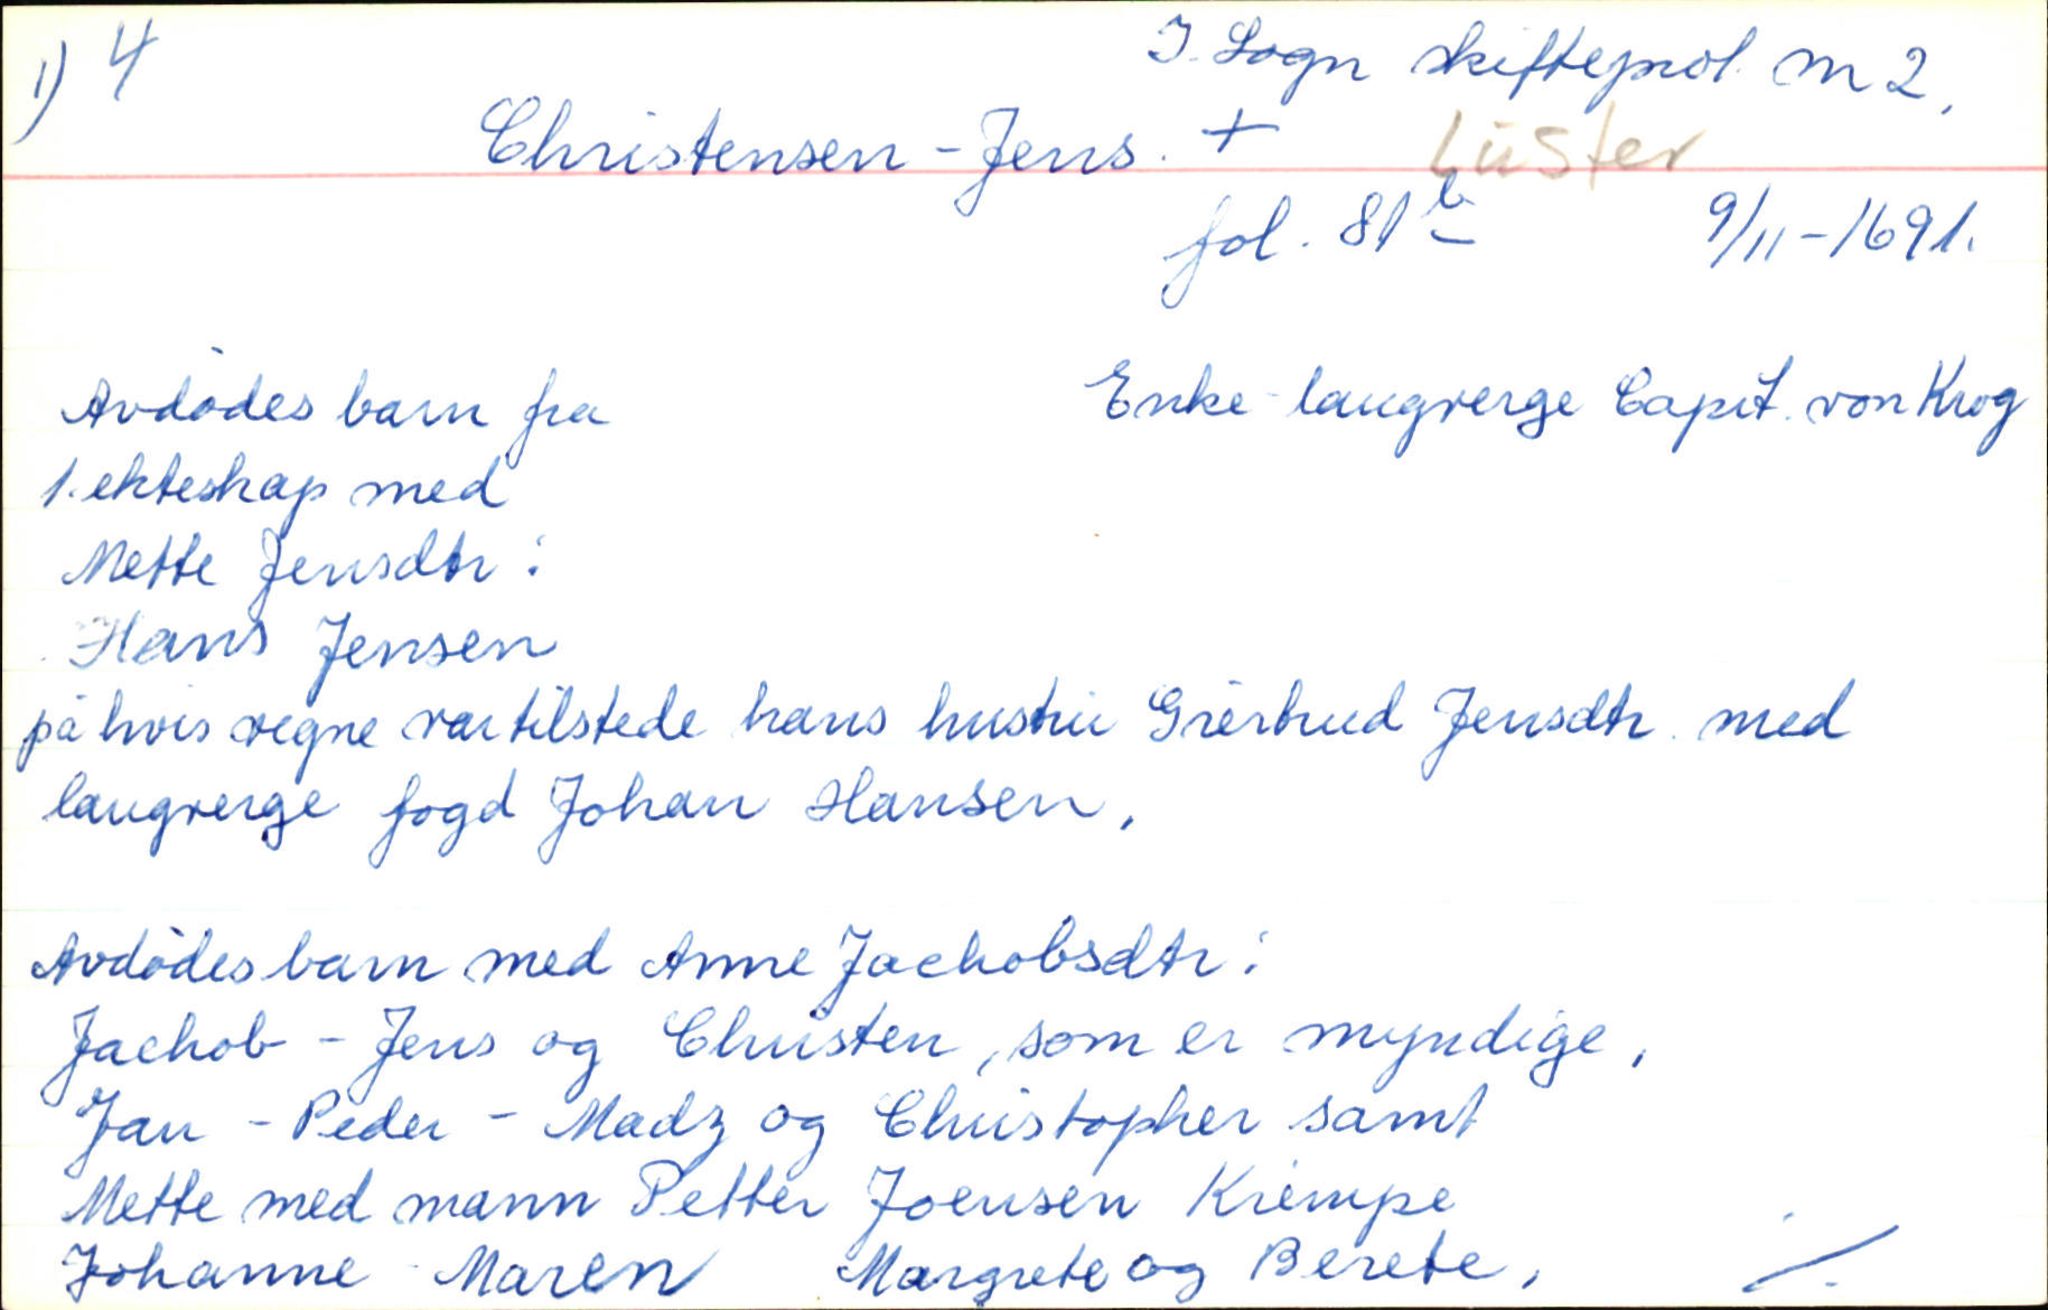 1) 4
I. Sogn skifteprot. m 2,
Christensen - Jens. +
Luster
fol. 81b 9/11 - 1691.
Avdødes barn fra
Enke - laugverge Capit. von Krog
1. ekteskap med
Mette Jensdtr:
Hans Jensen
på hvis vegne var tilstede hans hustru Giertrud Jensdtr. med
laugverge fogd Johan Hansen,
Avdødes barn med Anne Jachobsdtr:
Jachob - Jens og Christen, som er myndige,
Jan - Peder - Madz og Christopher samt
Mette med mann Petter Joensen Krempe
Johanne - Maren Margrete og Berete,